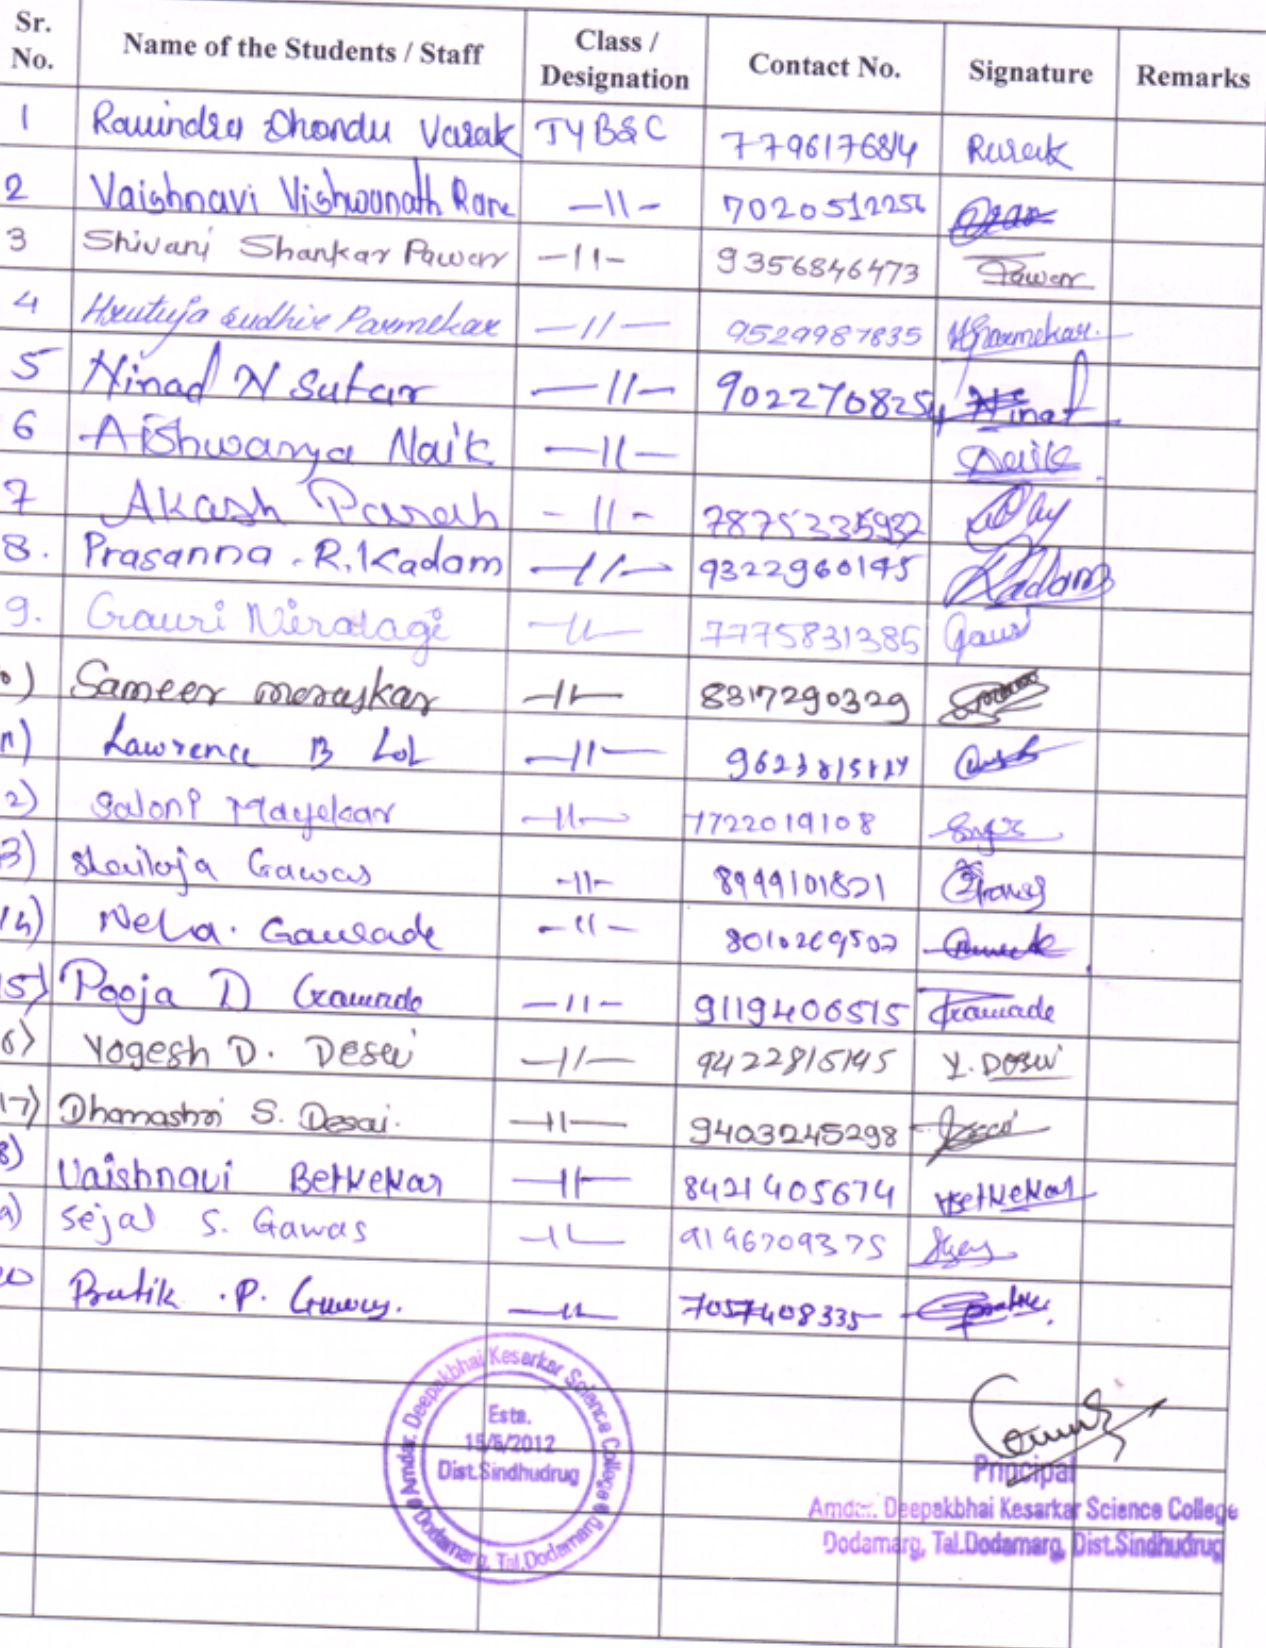 Sr. No. Name of the Students / Staff Class / Designation Contact No. Signature Remarks
1 Ravindra Dhondu Varak TYBSC 7796176814 Rvarak
2 Vaishnavi Vishwanath Rane —11— 7020512256
3 Shivani Shankar Pawar —11— 9356846473 Pawar
4 Hrutuja Sudhir Parmekar —11— 9529987835 HSParmekar.
5 Ninad N Sutar —11— 9022708254 Ninad
6 Aishwarya Naik —11— Naik
7 Akash Parab —11— 78752235932
8. Prasanna .R. Kadam —11— 9322960145 Kadam
9. Gauri Niralagi —11— 7775831385 Gauri
) Sameer —11— 8317290329
11) Lawrence B Lol —11—
2) Saloni Mayekar —11— 7722019108
3) Shailaja Gawas —11— 8999101821
14) Neha. Gawade —11— 8010269502
15) Pooja D Gawade —11— 9119406515 Gawade
6) Yogesh D. Desai —11— 9422815145 Y. Desai
17) Dhanashri S. Desai. —11— 9403245298
8) Vaishnavi Betkekar —11— 8421405674 VBetkekar
9) Sejal S. Gawas —11— 9196709375
20 Pratik .P. —11— 7057408335
Amdar. Deepakbhai Kesarkar Science College
Dodamarg, Tal.Dodamarg
Estd.
15/6/2012
Dist.Sindhudrug
Principal
Amdar. Deepakbhai Kesarkar Science College
Dodamarg, Tal.Dodamarg, Dist.Sindhudrug